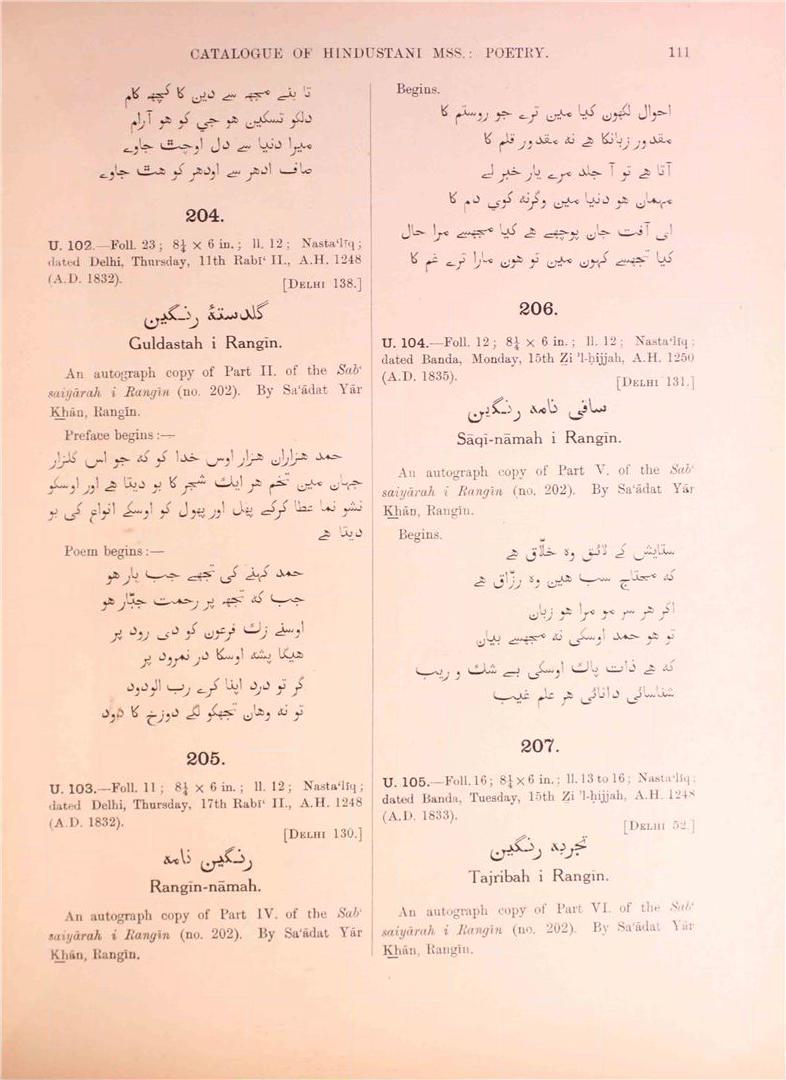 CATALOGUE OF HINDUSTANI MSS.: POETRY. 111
تا بنے مجھ سے دین کا کچھ کام
دلکو تسکین هو جي کو هو آرام
میرا دنیا سے دل اوچٹ جاوے
صاف ادھر سے اودھر کو هٹ جاوے
204.
U. 102.—Foll. 23; 8¼ × 6 in.; ll. 12; Nasta'līq;
dated Delhi, Thursday, 11th Rabī' II., A.H. 1248
(A.D. 1832). [DELHI 138.]
گلدستۀ رنگین
Guldastah i Rangīn.
An autograph copy of Part II. of the Sab'
saiyārah i Rangīn (no. 202). By Sa'ādat Yār
Khān, Rangīn.
Preface begins:—
حمد هزاران هزار اوس خدا کو که جو اس گلزار
جہان مین تخم هر ایك شجر کا بو دیتا هے اور اوسکو
نشو نما عطا کرکے پھل اور پھول کو اوسکے انواع کی بو
دیتا هے
Poem begins:—
حمد کہنے کی تجھے جب بار هو
جب که تجھ پر رحمت جبّار هو
اوسنے زك فرعون کو دی رود پر
هیگا پشه اوسکا در نمرود پر
گر تو درد اپنا کرے رب الودود
تو نه وهان تجھکو لگے دوزخ کا دود
205.
U. 103.—Foll. 11; 8¼ × 6 in.; ll. 12; Nasta'līq;
dated Delhi, Thursday, 17th Rabī' II., A.H. 1248
(A.D. 1832). [DELHI 130.]
رنگین نامه
Rangīn-nāmah.
An autograph copy of Part IV. of the Sab'
saiyārah i Rangīn (no. 202). By Sa'ādat Yār
Khān, Rangīn.
Begins.
احوال لکھون کیا مین ترے جو روستم کا
مقدور زبانکا هے نه مقدور قلم کا
آتا هے تو آ جلد مرے یار خبر لے
مہمان هو دنیا مین وگرنه کوي دم کا
اي آفت جان پوچھے هے کیا مجھسے مرا حال
کیا تجھسے کہون مین تو هون مارا ترے غم کا
206.
U. 104.—Foll. 12; 8¼ × 6 in.; ll. 12; Nasta'līq;
dated Banda, Monday, 15th Zi 'l-ḥijjah, A.H. 1250
(A.D. 1835). [DELHI 131.]
ساقی نامه رنگین
Sāqi-nāmah i Rangīn.
An autograph copy of Part V. of the Sab'
saiyārah i Rangīn (no. 202). By Sa'ādat Yār
Khān, Rangīn.
Begins.
ستایش کے لائق وه خلّاق هے
که محتاج سب هین وه رزّاق هے
اگر هر سر مو مرا هو زبان
تو هو حمد اوسکی نه مجھسے بیان
که هے ذات پاك اوسکی بے شك و ریب
شناسائی دانائی هر علم غیب
207.
U. 105.—Foll. 16; 8¼ × 6 in.; ll. 13 to 16; Nasta'līq;
dated Banda, Tuesday, 15th Zi 'l-ḥijjah, A.H. 1248
(A.D. 1833). [DELHI 52.]
تجربه رنگین
Tajribah i Rangīn.
An autograph copy of Part VI. of the Sab'
saiyārah i Rangīn (no. 202). By Sa'ādat Yār
Khān, Rangīn.